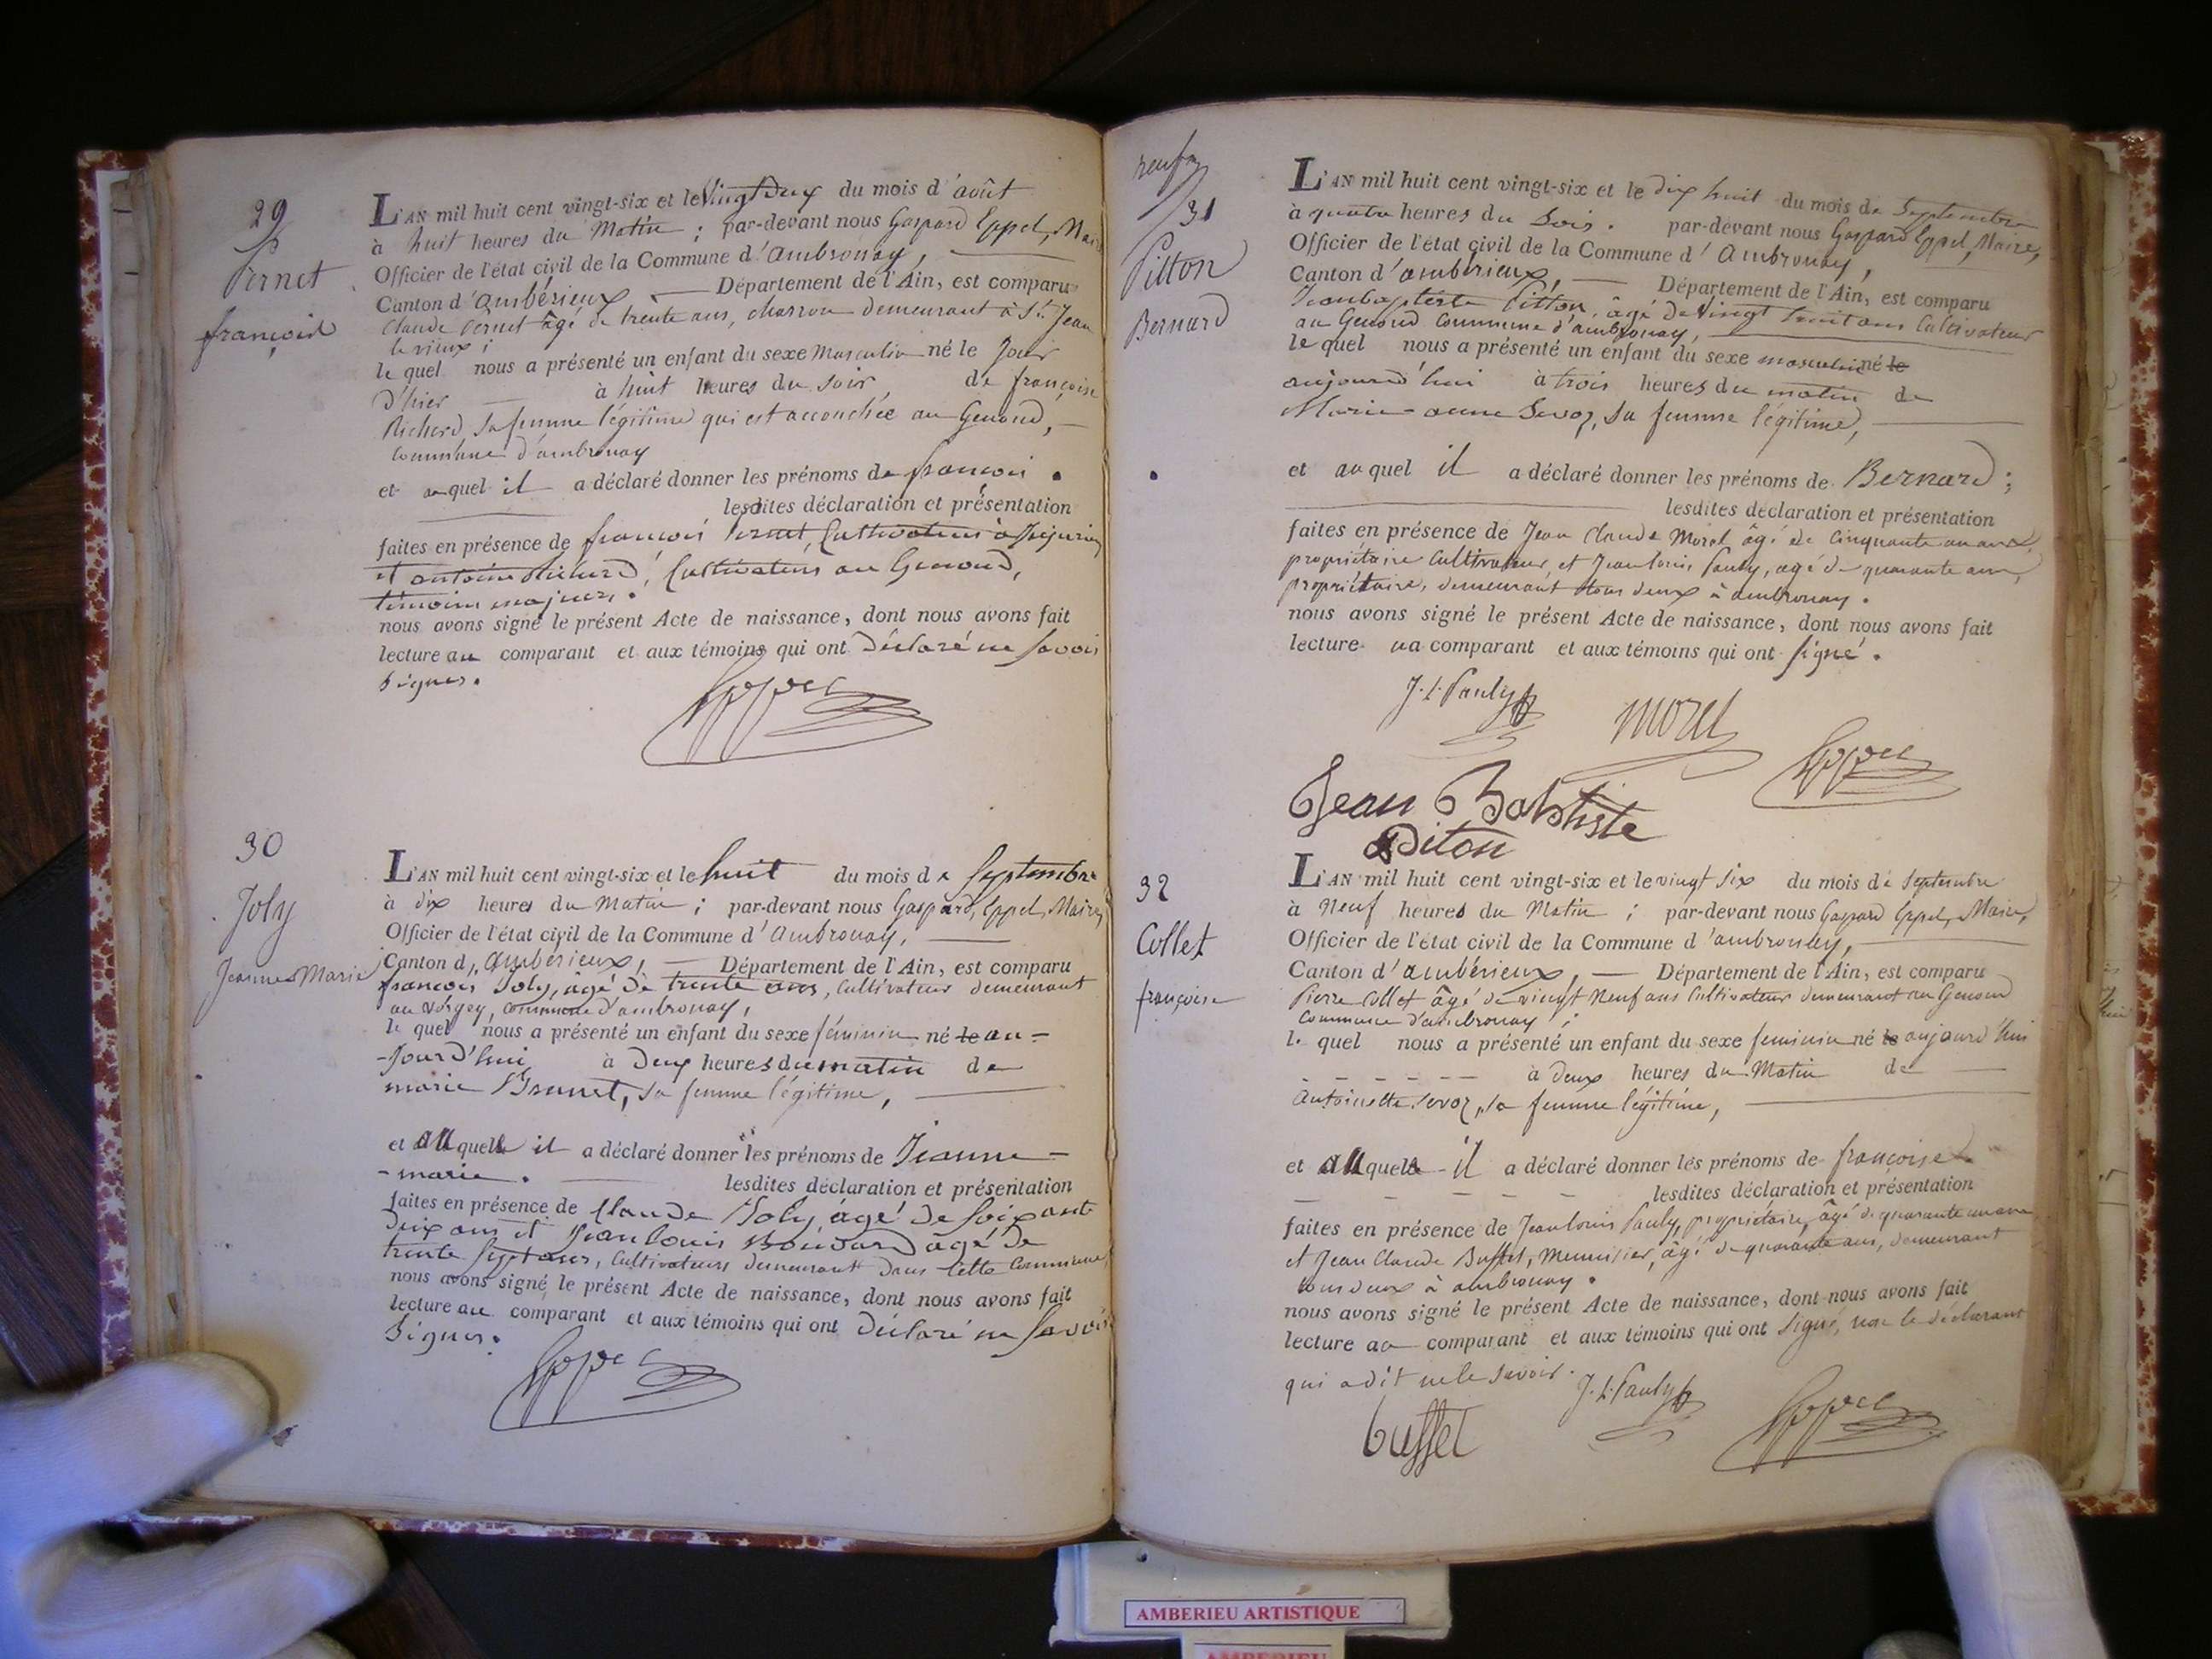 29
Pernet
françois
L'AN mil huit cent vingt-six et le Vingt Deux du mois d'août
à huit heures du Matin ; par-devant nous Gaspard Eppel, Maire
Officier de l'état civil de la Commune d'ambronay,
Canton d'ambérieux, Département de l'Ain, est comparu
Claude Pernet âgé de trente ans, charron demeurant à St. Jean
le vieux ;
le quel nous a présenté un enfant du sexe Masculin né le Jour
d'hier à huit heures du soir de françoise
Richerd sa femme légitime qui est accouchée au Genoud,
commune d'ambronay
et auquel il a déclaré donner les prénoms de françois .
lesdites déclaration et présentation
faites en présence de françois Pernet, Cultivateur à
et antoine Richerd, Cultivateur au Genoud,
témoins majeurs .
nous avons signé le présent Acte de naissance, dont nous avons fait
lecture au comparant et aux témoins qui ont Déclaré ne savoir
signer.
Eppel
30
Joly
Jeanne Marie
L'AN mil huit cent vingt-six et le huit du mois de Septembre
à dix heures du Matin ; par-devant nous Gaspard, Eppel, Maire,
Officier de l'état civil de la Commune d'ambronay,
Canton d, ambérieux, Département de l'Ain, est comparu
françois Joly, âgé de trente ans, Cultivateur demeurant
au Vorgey, commune d'ambronay,
le quel nous a présenté un enfant du sexe féminin né le au-
-Jourd'hui à Deux heures du matin de
marie Brunet, sa femme légitime,
et auquel il a déclaré donner les prénoms de Jeanne-
-marie .
lesdites déclaration et présentation
faites en présence de Claude Joly, âgé de soixante
Dix ans et Jean louis Bouvard âgé de
trente sept ans, Cultivateurs demeurant dans cette Commune,
nous avons signé le présent Acte de naissance, dont nous avons fait
lecture au comparant et aux témoins qui ont Déclaré ne savoir
Signer.
Eppel
neuf
31
Pitton
Bernard
L'AN mil huit cent vingt-six et le dix huit du mois de Septembre
à quatre heures du Soir. par-devant nous Gaspard Eppel, Maire,
Officier de l'état civil de la Commune d'Ambronay,
Canton d'ambérieux, Département de l'Ain, est comparu
Jean baptiste Pitton, âgé de Vingt huit ans Cultivateur
au Genoud Commune d'ambronay,
le quel nous a présenté un enfant du sexe masculin né le
aujourd'hui à trois heures du matin de
Marie-anne Sevoz, sa femme légitime,
et auquel il a déclaré donner les prénoms de Bernard ;
lesdites déclaration et présentation
faites en présence de Jean Claude Morel âgé de Cinquante un ans,
propriétaire Cultivateur et Jean louis Pauly, agé de quarante ans,
propriétaire, demeurant tous deux à ambronay .
nous avons signé le présent Acte de naissance, dont nous avons fait
lecture ua comparant et aux témoins qui ont signé .
J. L. Pauly
morel
Eppel
Jean Babtiste
Piton
32
Collet
françoise
L'AN mil huit cent vingt-six et le vingt six du mois de Septembre
à Neuf heures du Matin ; par-devant nous Gaspard Eppel, Maire,
Officier de l'état civil de la Commune d'ambronay,
Canton d'ambérieux, Département de l'Ain, est comparu
Pierre Collet âgé de vingt Neuf ans Cultivateur demeurant au Genoud
Commune d'ambronay ;
le quel nous a présenté un enfant du sexe feminin né le aujourd'hui
à Deux heures du Matin de
Antoinette Sevoz, sa femme légitime,
et auquel il a déclaré donner les prénoms de françoise
lesdites déclaration et présentation
faites en présence de Jean louis Pauly, propriétaire, âgé de quarante un ans
et Jean Claude Buffet, Menuisier, âgé de quarante ans, demeurant
tous deux à ambronay .
nous avons signé le présent Acte de naissance, dont nous avons fait
lecture au comparant et aux témoins qui ont Signé, non le déclarant
qui a dit ne le savoir.
J. L. Pauly
buffet
Eppel
AMBERIEU ARTISTIQUE
AMBERIEU